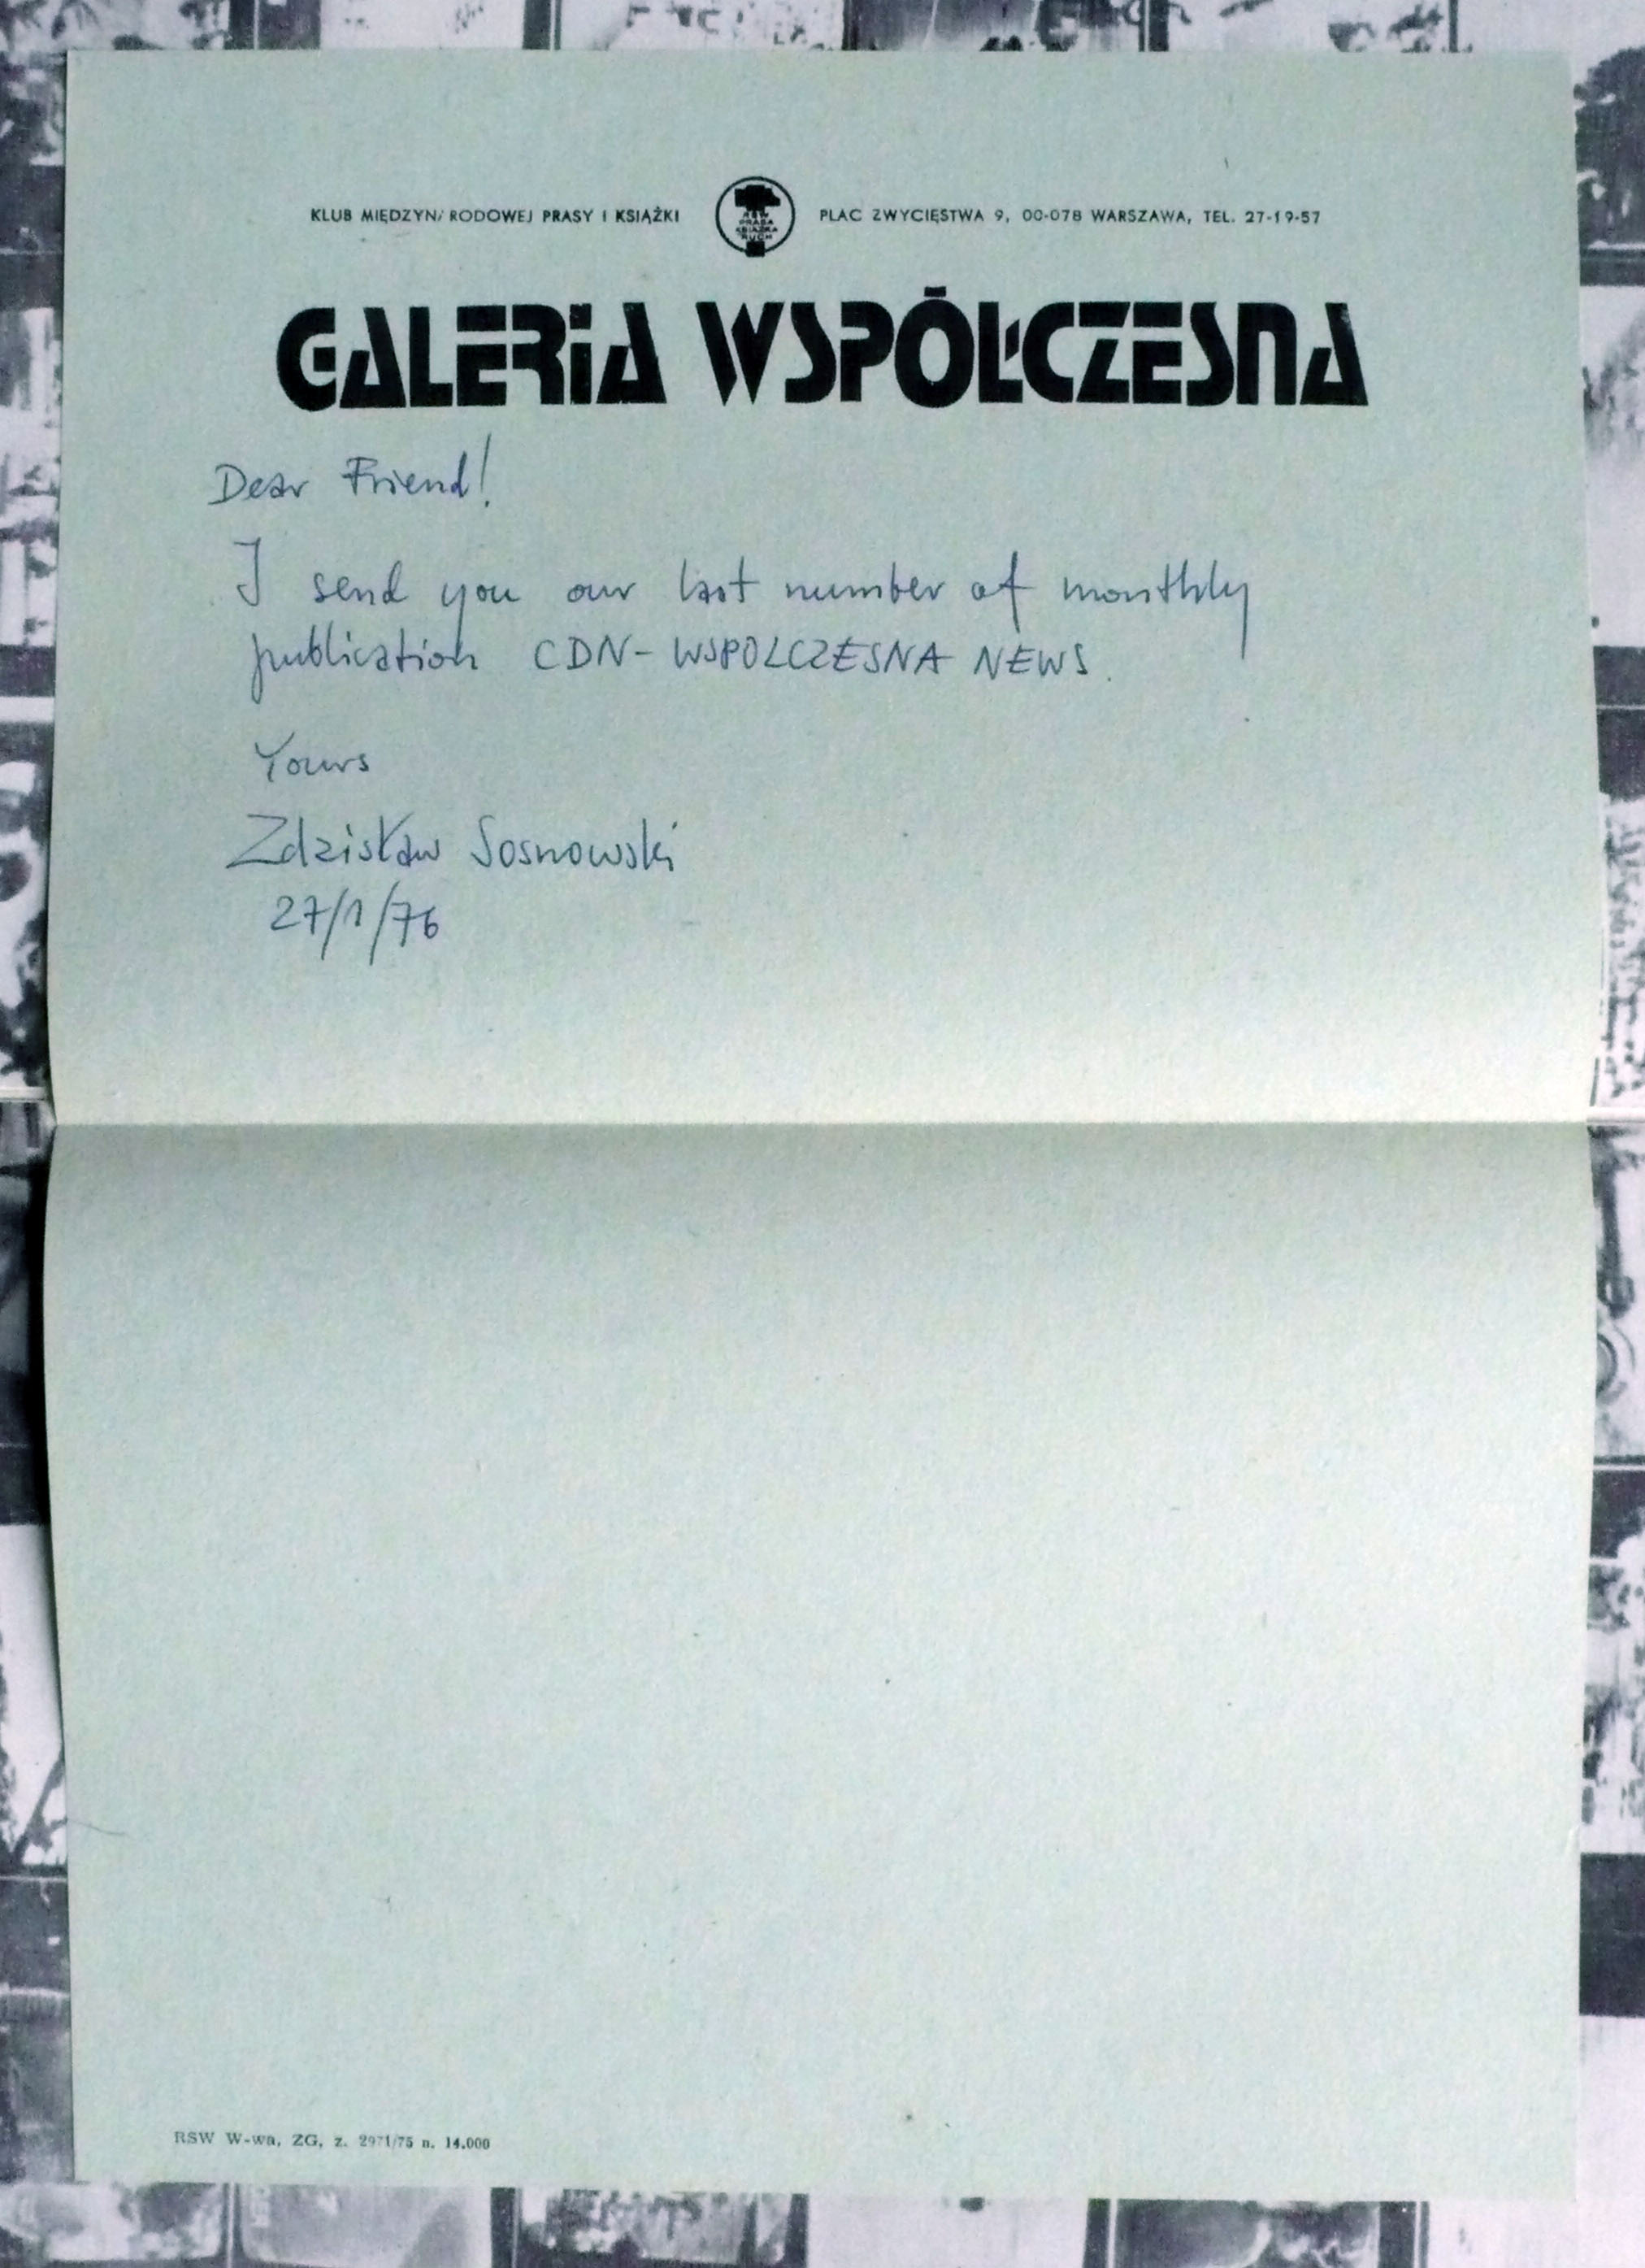 KLUB MIĘDZYN RODOWEJ PRASY I KSIĄŻKI
RSW
PRASA
KSIĄŻKA
RUCH
PLAC ZWYCIĘSTWA 9, 00-078 WARSZAWA, TEL. 27-19-57
GALERIA WSPÓŁCZESNA
Dear Friend!
I send you our last number of monthly
publication CDN- WSPOLCZESNA NEWS.
Yours
Zdzisław Sosnowski
27/1/76
RSW W-wa, ZG, z. 2971/75 n. 14.000